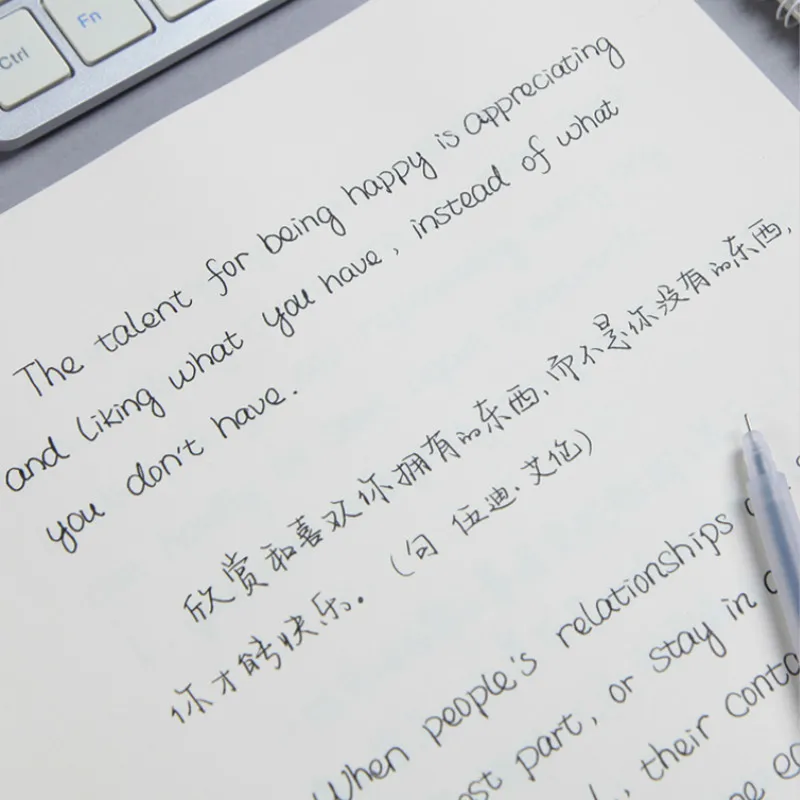 Ctrl
Fn
The talent for being happy is appreciating
and liking what you have, instead of what
you don't have.
欣赏和喜欢你拥有的东西,而不是你没有的东西,
你才能快乐。(句 伍迪·艾伦)
When people's relationships
part, or stay in
, their